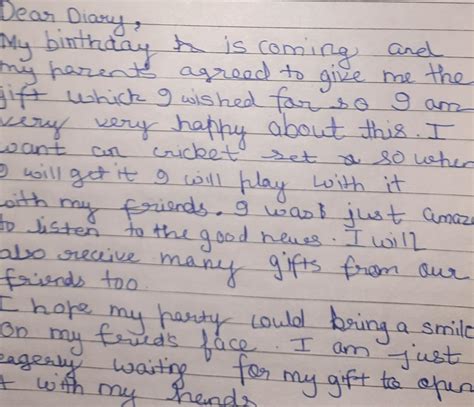 Dear Diary,
My birthday is coming and
my parents agreed to give me the
gift which I wished for so I am
very very happy about this. I
want an cricket set so when
I will get it I will play with it
with my friends. I was just amaze
to listen to the good news. I will
also receive many gifts from our
friends too.
I hope my party could bring a smile
on my frieds face. I am just
eagerly waiting for my gift to open
it with my hands